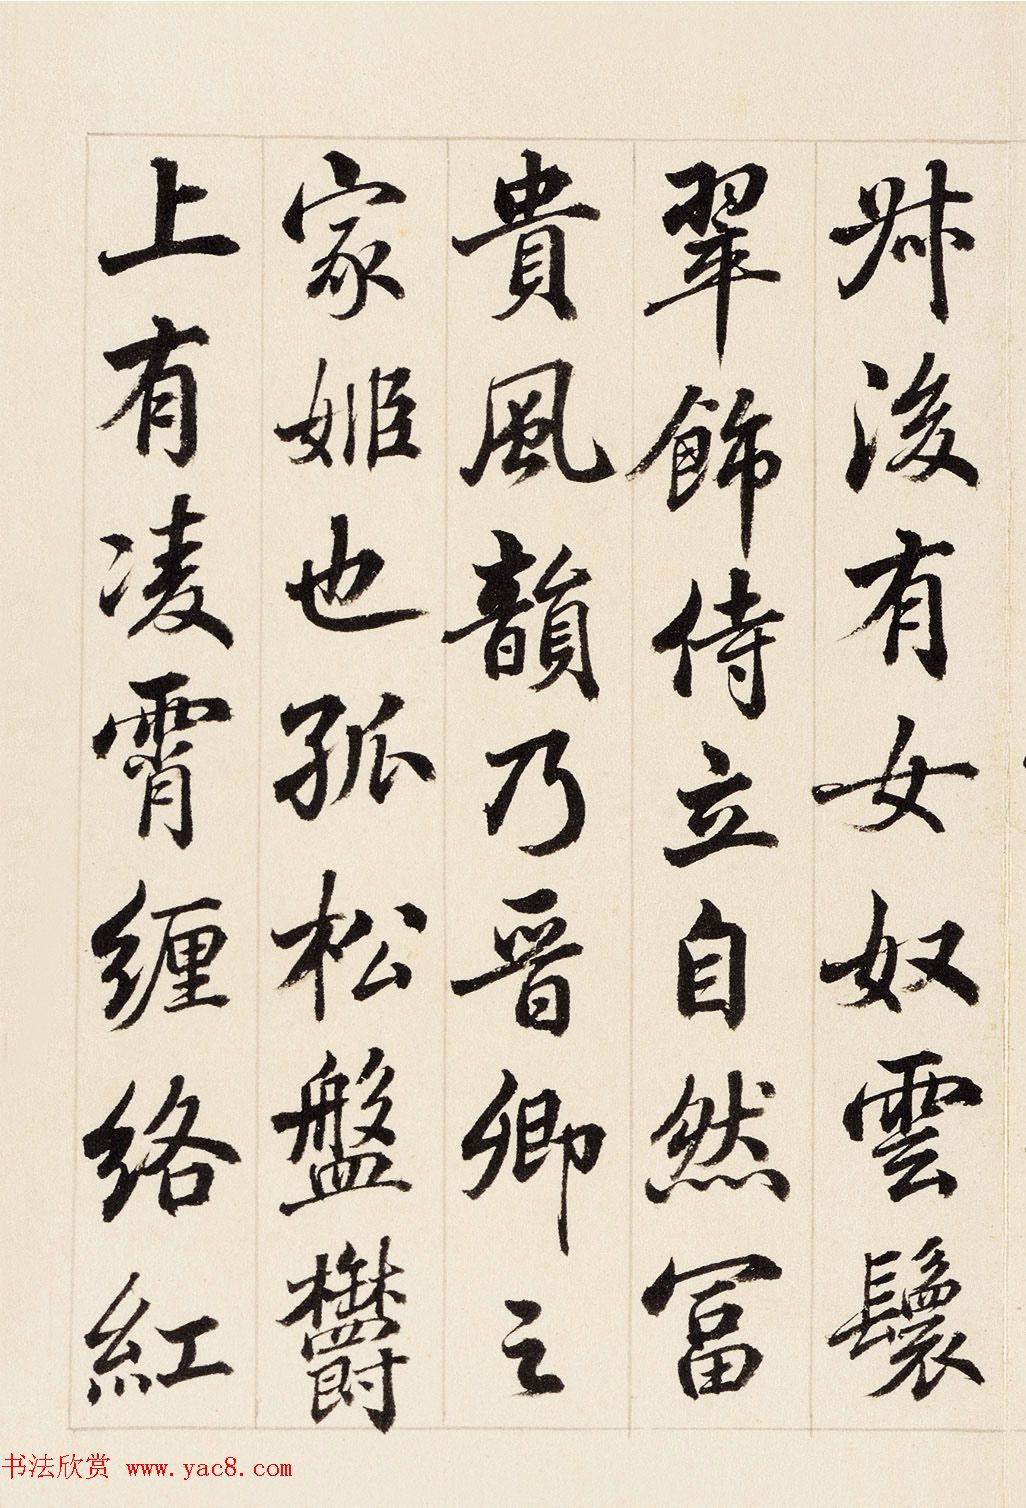 叔後有女奴雲鬟
翠飾侍立自然冨
貴風韻乃晋卿之
家姬也孤松盤鬱
上有凌霄纏絡紅
书法欣赏 www.yac8.com